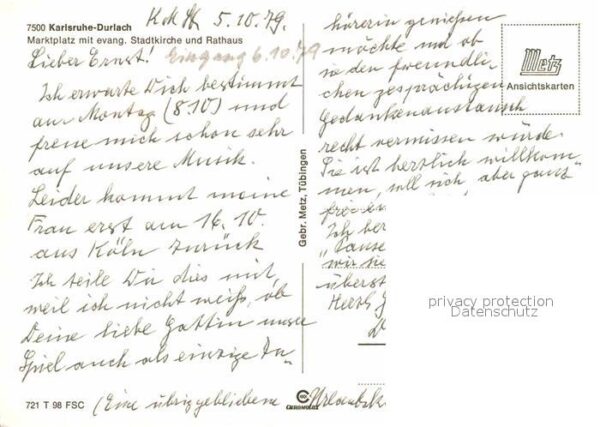 7500 Karlsruhe-Durlach
Marktplatz mit evang. Stadtkirche und Rathaus
5.10.79.
Lieber Ernst! Eingang 6.10.79
Ich erwarte Dich bestimmt
am Montag (8.10) und
freue mich schon sehr
auf unsere Musik.
Leider kommt meine
Frau erst am 16.10.
aus Köln zurück
Ich teile Dir dies mit,
weil ich nicht weiß, ob
Deine liebe Gattin unser
Spiel auch als einzige Zu-
721 T 98 FSC
(Eine übriggebliebene Urlaubsk
Gebr. Metz, Tübingen
CHROMOLUX
hörerin genießen
möchte und ob
sie den freundli-
chen gesprächigen
Gedankenaustausch
recht vermissen würde.
Sie ist herzlich willkom-
men, soll sich, aber ganz
Ich ber
"Pause
wir sie
überst
Herzl
D
Metz
Ansichtskarten
privacy protection
Datenschutz